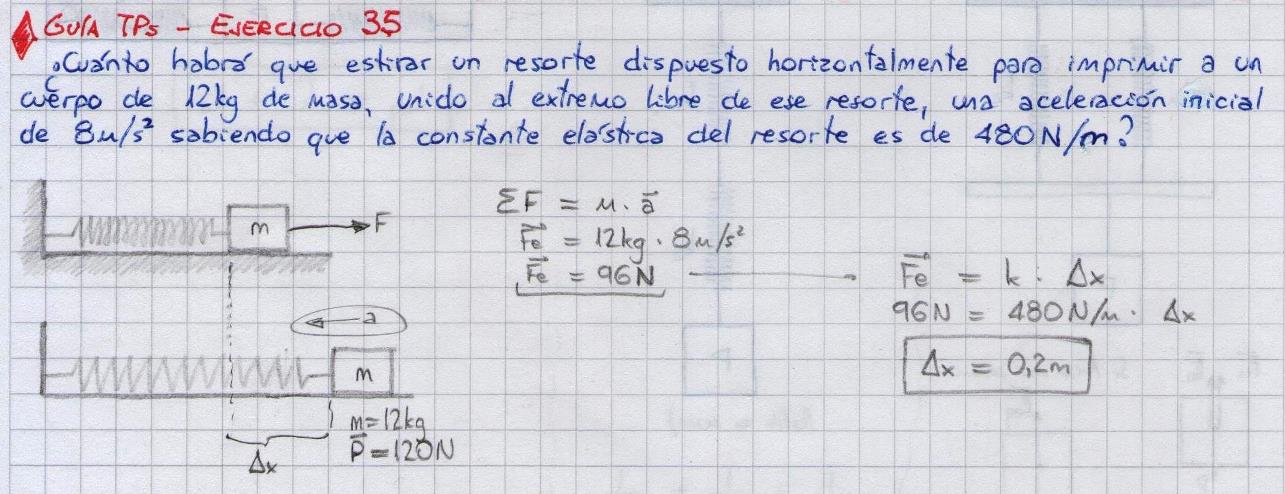 GUÍA TPs - EJERCICIO 35
¿Cuánto habrá que estirar un resorte dispuesto horizontalmente para imprimir a un
cuerpo de 12kg de masa, unido al extremo libre de ese resorte, una aceleración inicial
de 8m/s² sabiendo que la constante elástica del resorte es de 480N/m?
m
F
ΣF = m . a⃗
F⃗e = 12kg . 8m/s²
F⃗e = 96N
F⃗e = k . Δx
96N = 480N/m . Δx
Δx = 0,2m
a
m
m=12kg
P⃗=120N
Δx